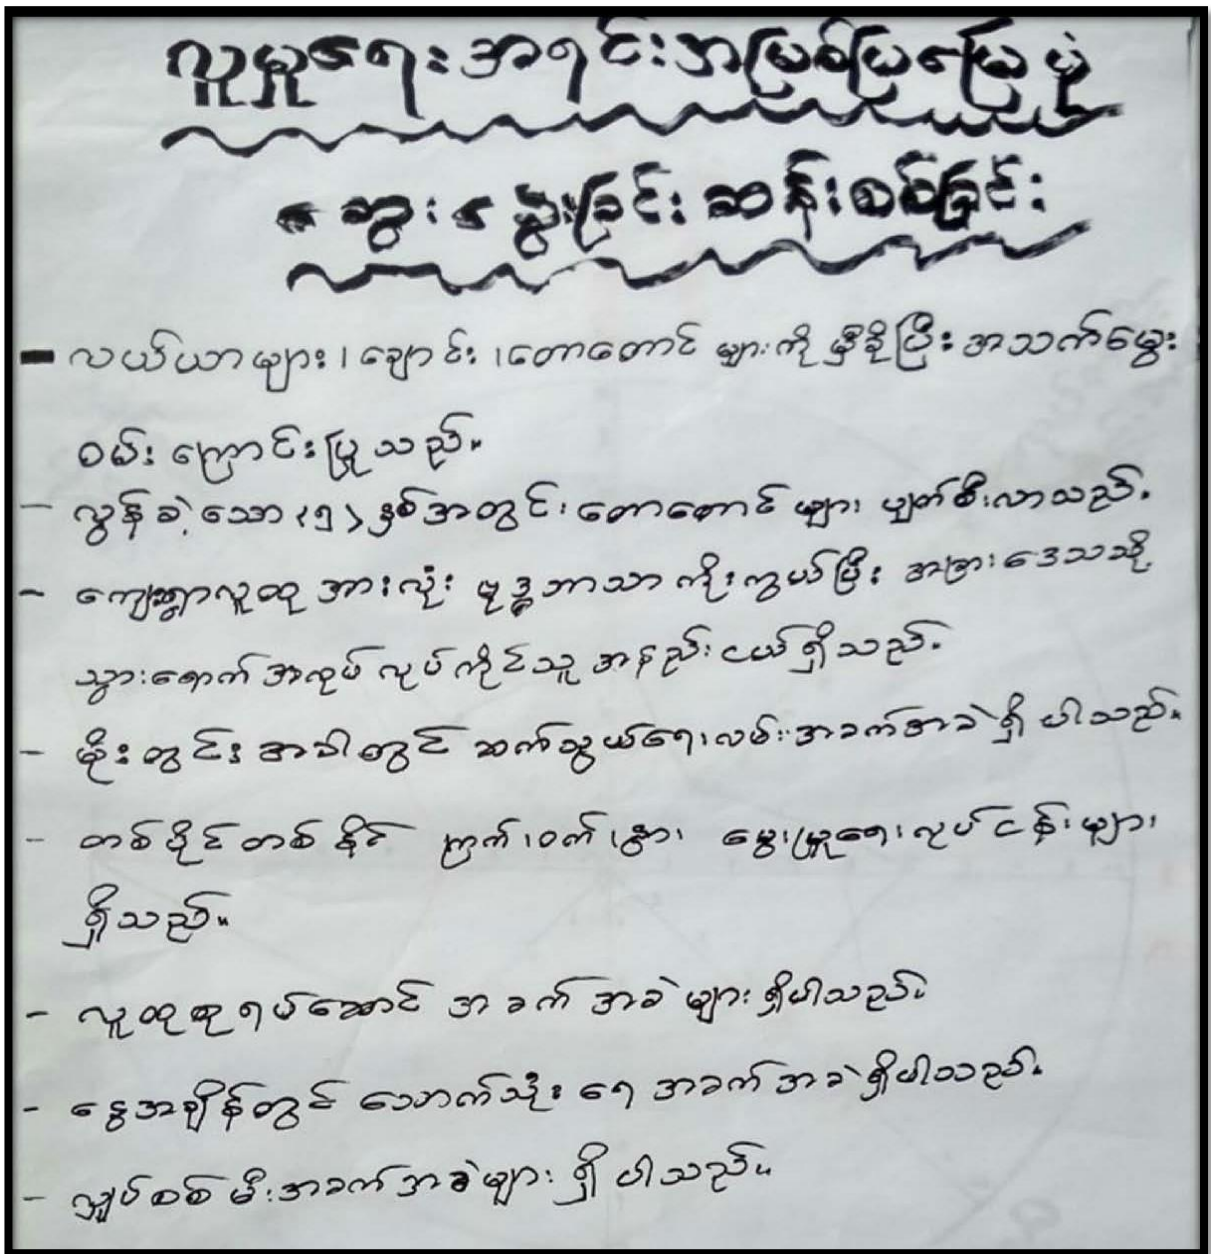 လူမှုရေးအရင်းအမြစ်ပြမြေပုံ
ဆွေးနွေးခြင်းဆန်းစစ်ခြင်း
- လယ်ယာများ၊ ချောင်း၊ တောတောင် များကို မှီခိုပြီးအသက်မွေး
ဝမ်းကြောင်းပြုသည်။
- လွန်ခဲ့သော (၅) နှစ်အတွင်း တောတောင် များ ပျက်စီးလာသည်။
- ကျေးရွာလူထု အားလုံး ဗုဒ္ဓဘာသာ ကိုးကွယ်ပြီး အခြားဒေသသို့
သွားရောက်အလုပ် လုပ်ကိုင်သူ အနည်းငယ်ရှိသည်။
- မိုးတွင်းအခါတွင် ဆက်သွယ်ရေးလမ်းအခက်အခဲရှိ ပါသည်။
- တစ်ပိုင်တစ်နိုင် ကြက်၊ဝက်၊နွား မွေးမြူရေးလုပ်ငန်းများ
ရှိသည်။
- လူထုစုရပ်ဆောင် အခက် အခဲ များရှိပါသည်။
- နွေအချိန်တွင် သောက်သုံး ရေ အခက်အခဲရှိပါသည်။
- လျှပ်စစ် မီးအခက်အခဲများ ရှိ ပါသည်။